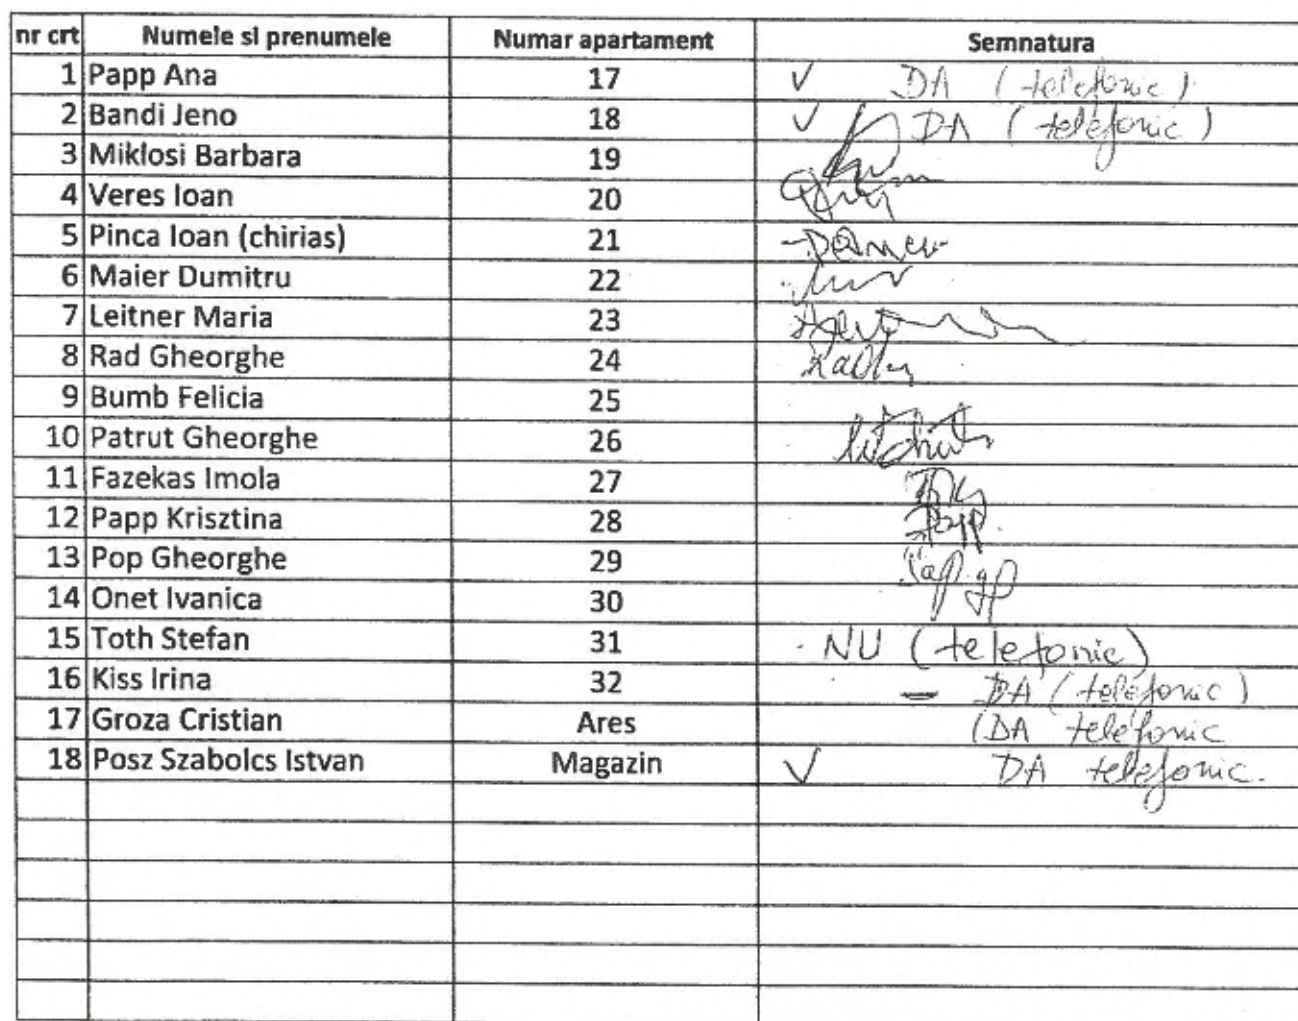 nr crt Numele si prenumele Numar apartament Semnatura
1 Papp Ana 17 ✓ DA (telefonic)
2 Bandi Jeno 18 ✓ DA (telefonic)
3 Miklosi Barbara 19
4 Veres Ioan 20
5 Pinca Ioan (chirias) 21
6 Maier Dumitru 22
7 Leitner Maria 23
8 Rad Gheorghe 24
9 Bumb Felicia 25
10 Patrut Gheorghe 26
11 Fazekas Imola 27
12 Papp Krisztina 28
13 Pop Gheorghe 29
14 Onet Ivanica 30
15 Toth Stefan 31 - NU (telefonic)
16 Kiss Irina 32 – DA (telefonic)
17 Groza Cristian Ares (DA telefonic
18 Posz Szabolcs Istvan Magazin ✓ DA telefonic.